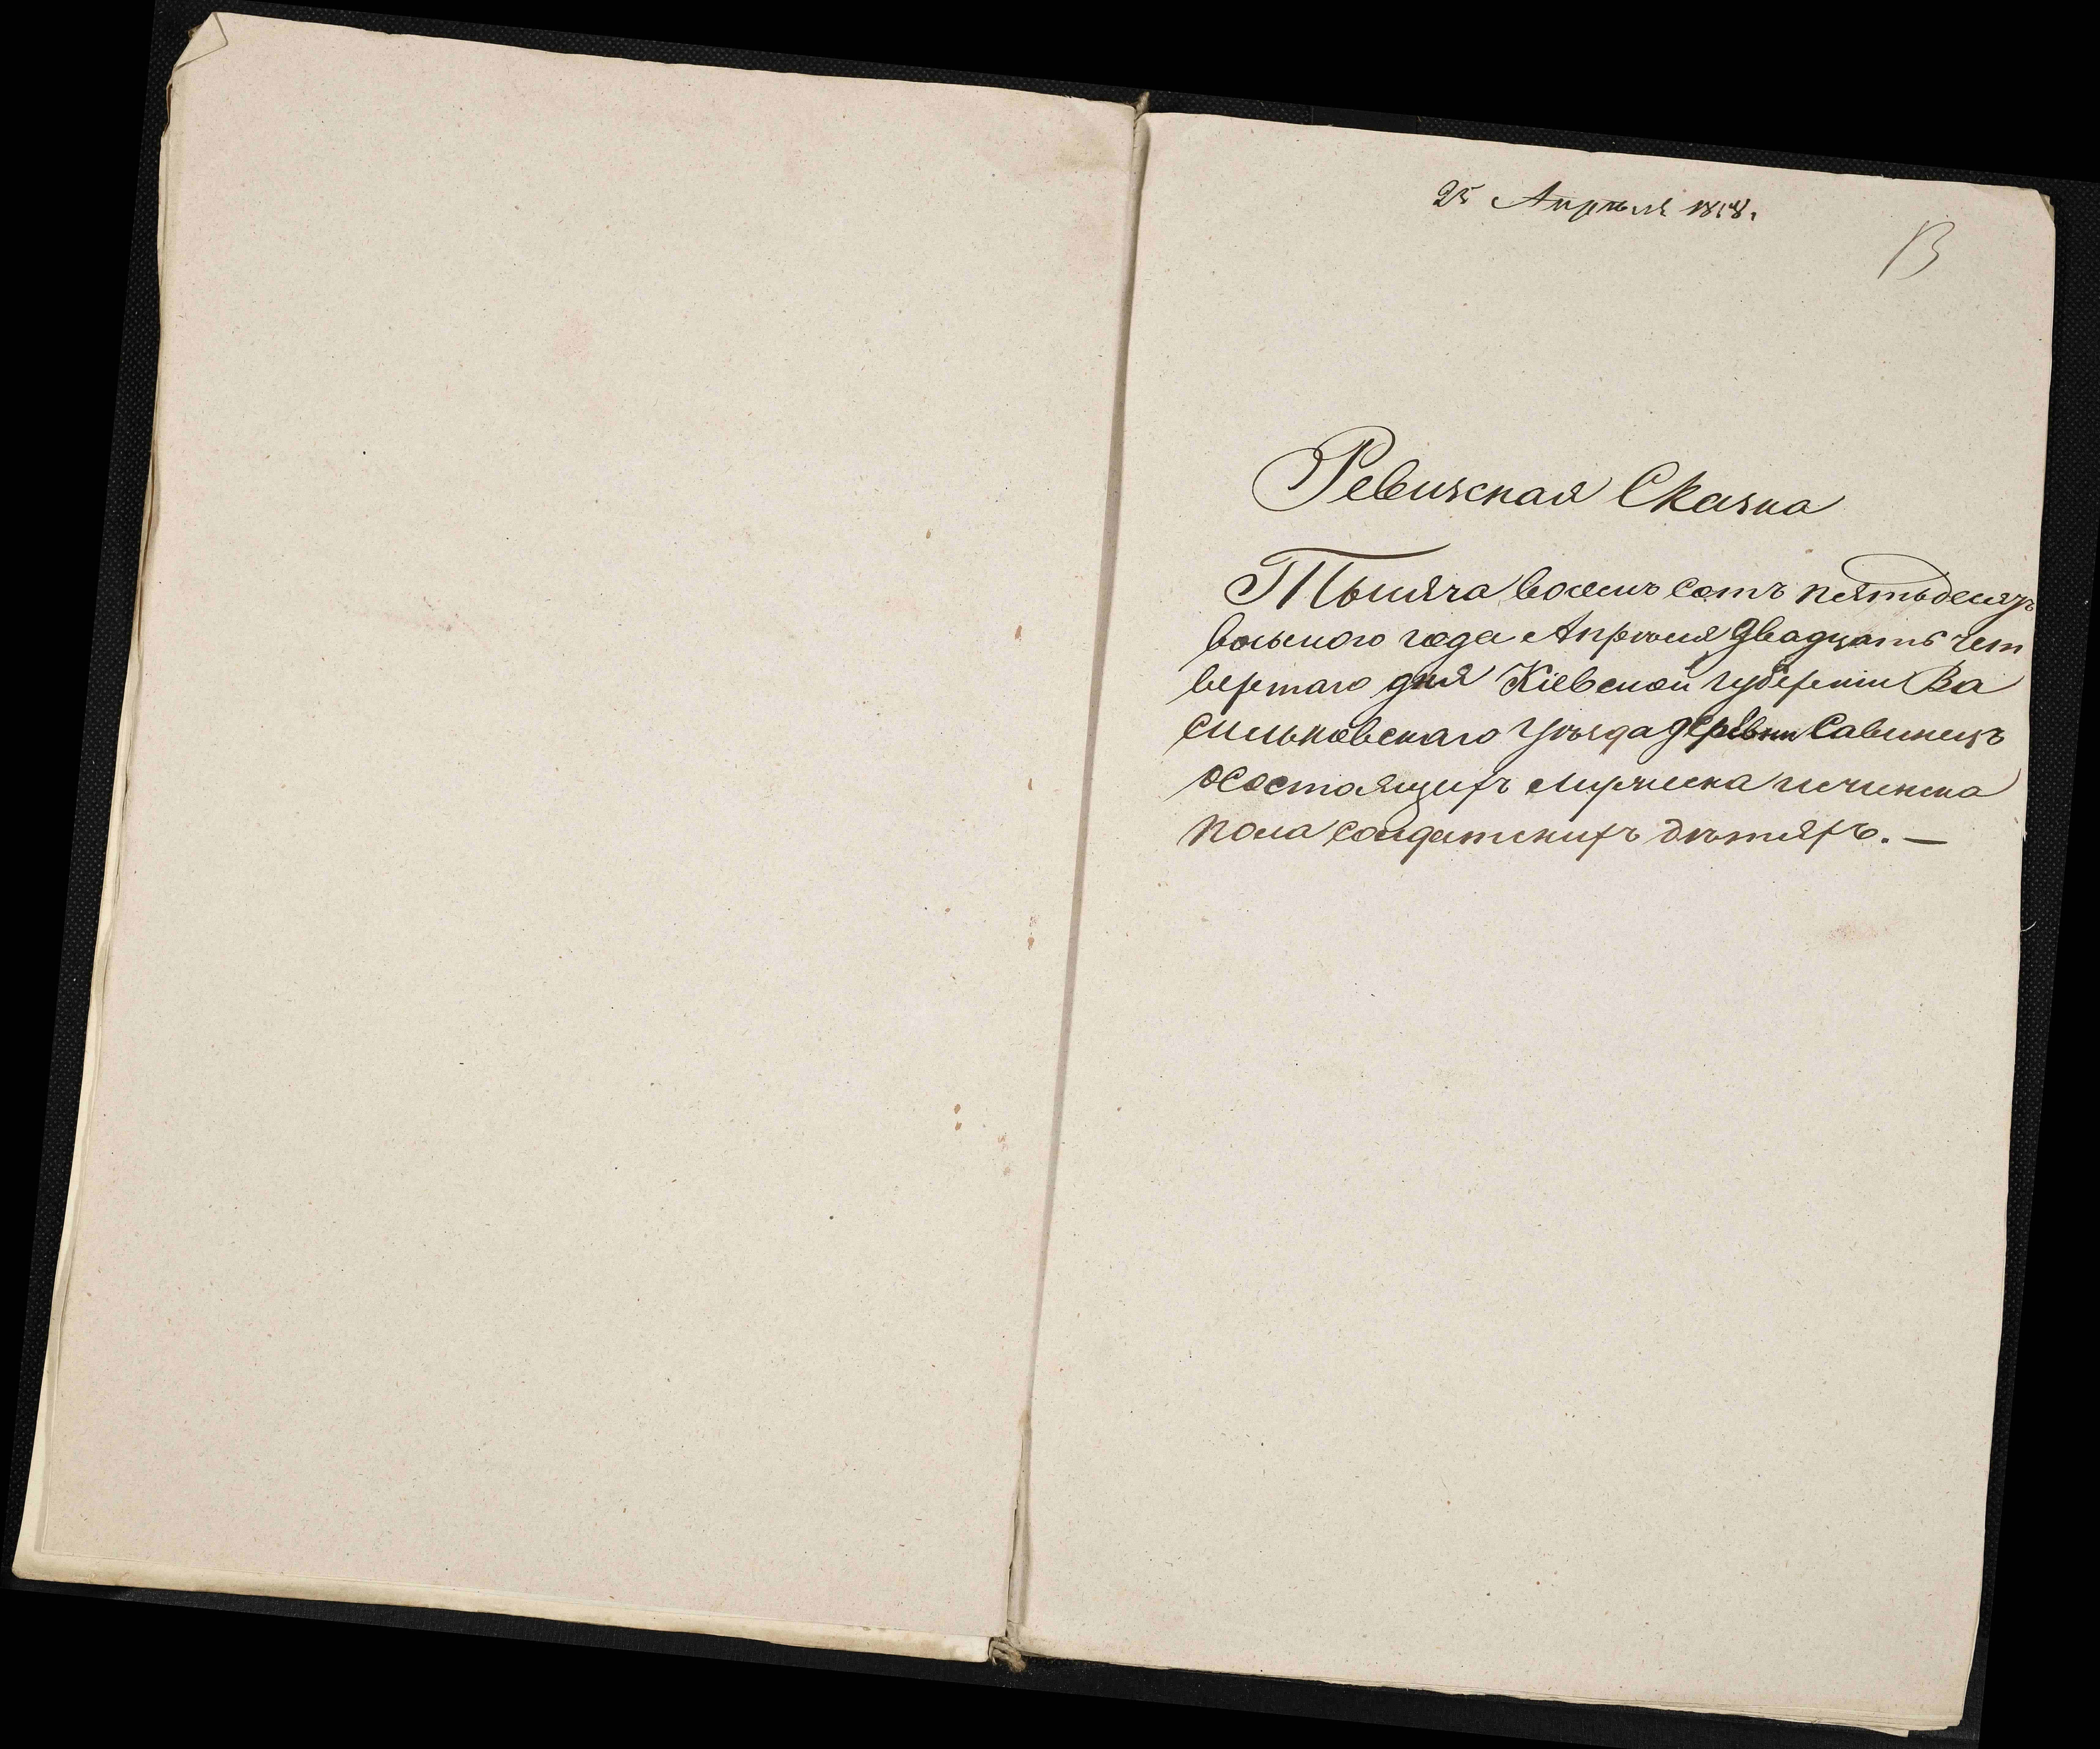 25 Апрѣля 1858.
13
Ревизская Сказка
Тысяча восемь сотъ пятьдесятъ
восьмого года Апрѣля двадцать чет
вертаго дня Кіевской губерніи Ва
сильковскаго уѣзда деревни Савинецъ
о состоящихъ мужеска и женска
пола солдатскихъ дѣтяхъ. —